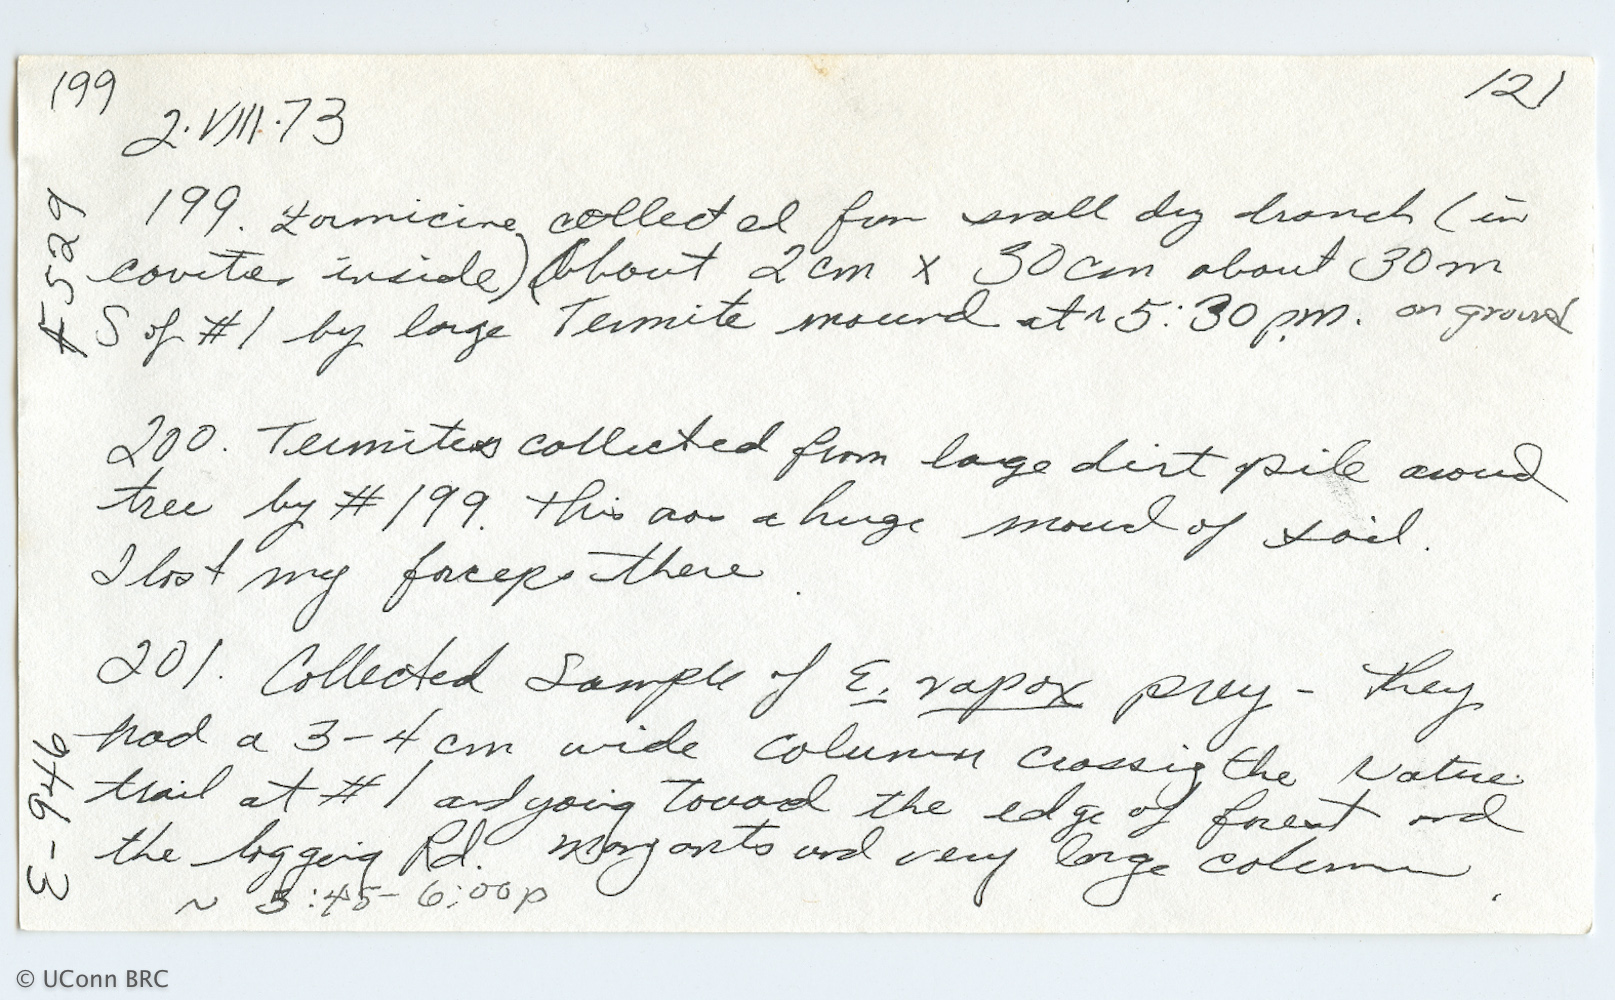 199
121
2.VIII.73
199. Formicine collected from small dry branch (in
cavities inside) (about 2cm x 30cm about 30m
S of #1 by large Termite mound at ~ 5:30 p.m. on ground
F529
200. Termites collected from large dirt pile around
tree by #199. This was a huge mound of soil.
I lost my forceps there.
201. Collected Sample of E. rapax prey - They
had a 3-4 cm wide column crossing the Nature
trail at #1 and going toward the edge of forest and
the logging Rd. Many ants and very large column.
~ 5:45-6:00p
E-946
© UConn BRC